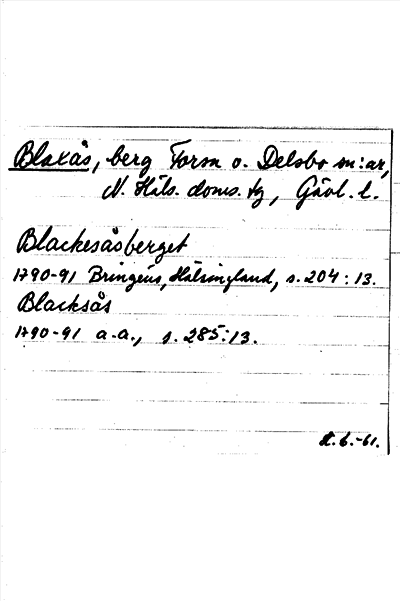 Blaxås, berg Forsa o. Delsbo sn:ar,
N. Häls. doms. tg, Gävl. l.
Blackesåsberget
1790-91 Bringéus, Hälsingland, s. 204:13.
Blacksås
1790-91 a.a., s. 285:13.
6.-61.